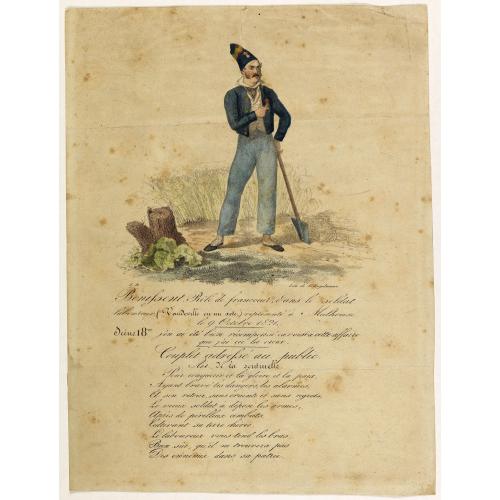 Lith. de G. Engelmann
Benissent Rôle de francœur, dans le soldat
laboureur, (Vaudeville en un acte,) représenté à Mulhouse
le 9 Octobre 1821.
Scène 18me j'en ai été bien récompensé car c'est à cette affaire
que j'ai eu la croix.
Couplet adressé au public
Air de la sentinelle
Pour conquérir et la gloire et la paix,
Ayant bravé les dangers, les alarmes,
A son retour, sans ornent et sans regrets,
Le vieux soldat a déposé les armes,
Après de périlleux combats
Cultivant sa terre chérie
Le laboureur vous tend les bras,
Bien sûr, qu'il ne trouvera pas
Des ennemis dans sa patrie.